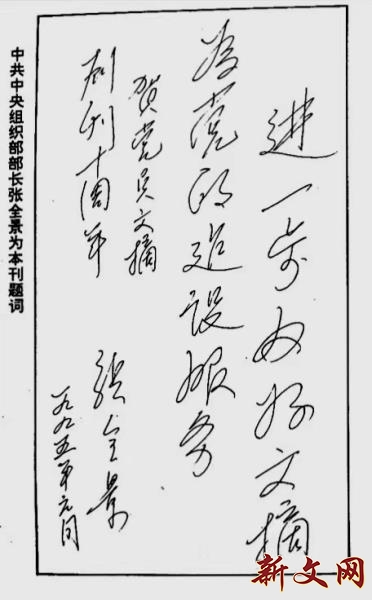 进一步办好文摘
为党的建设服务
贺党员文摘
创刊十周年
张全景
一九九五年元月
中共中央组织部部长张全景为本刊题词
新文网